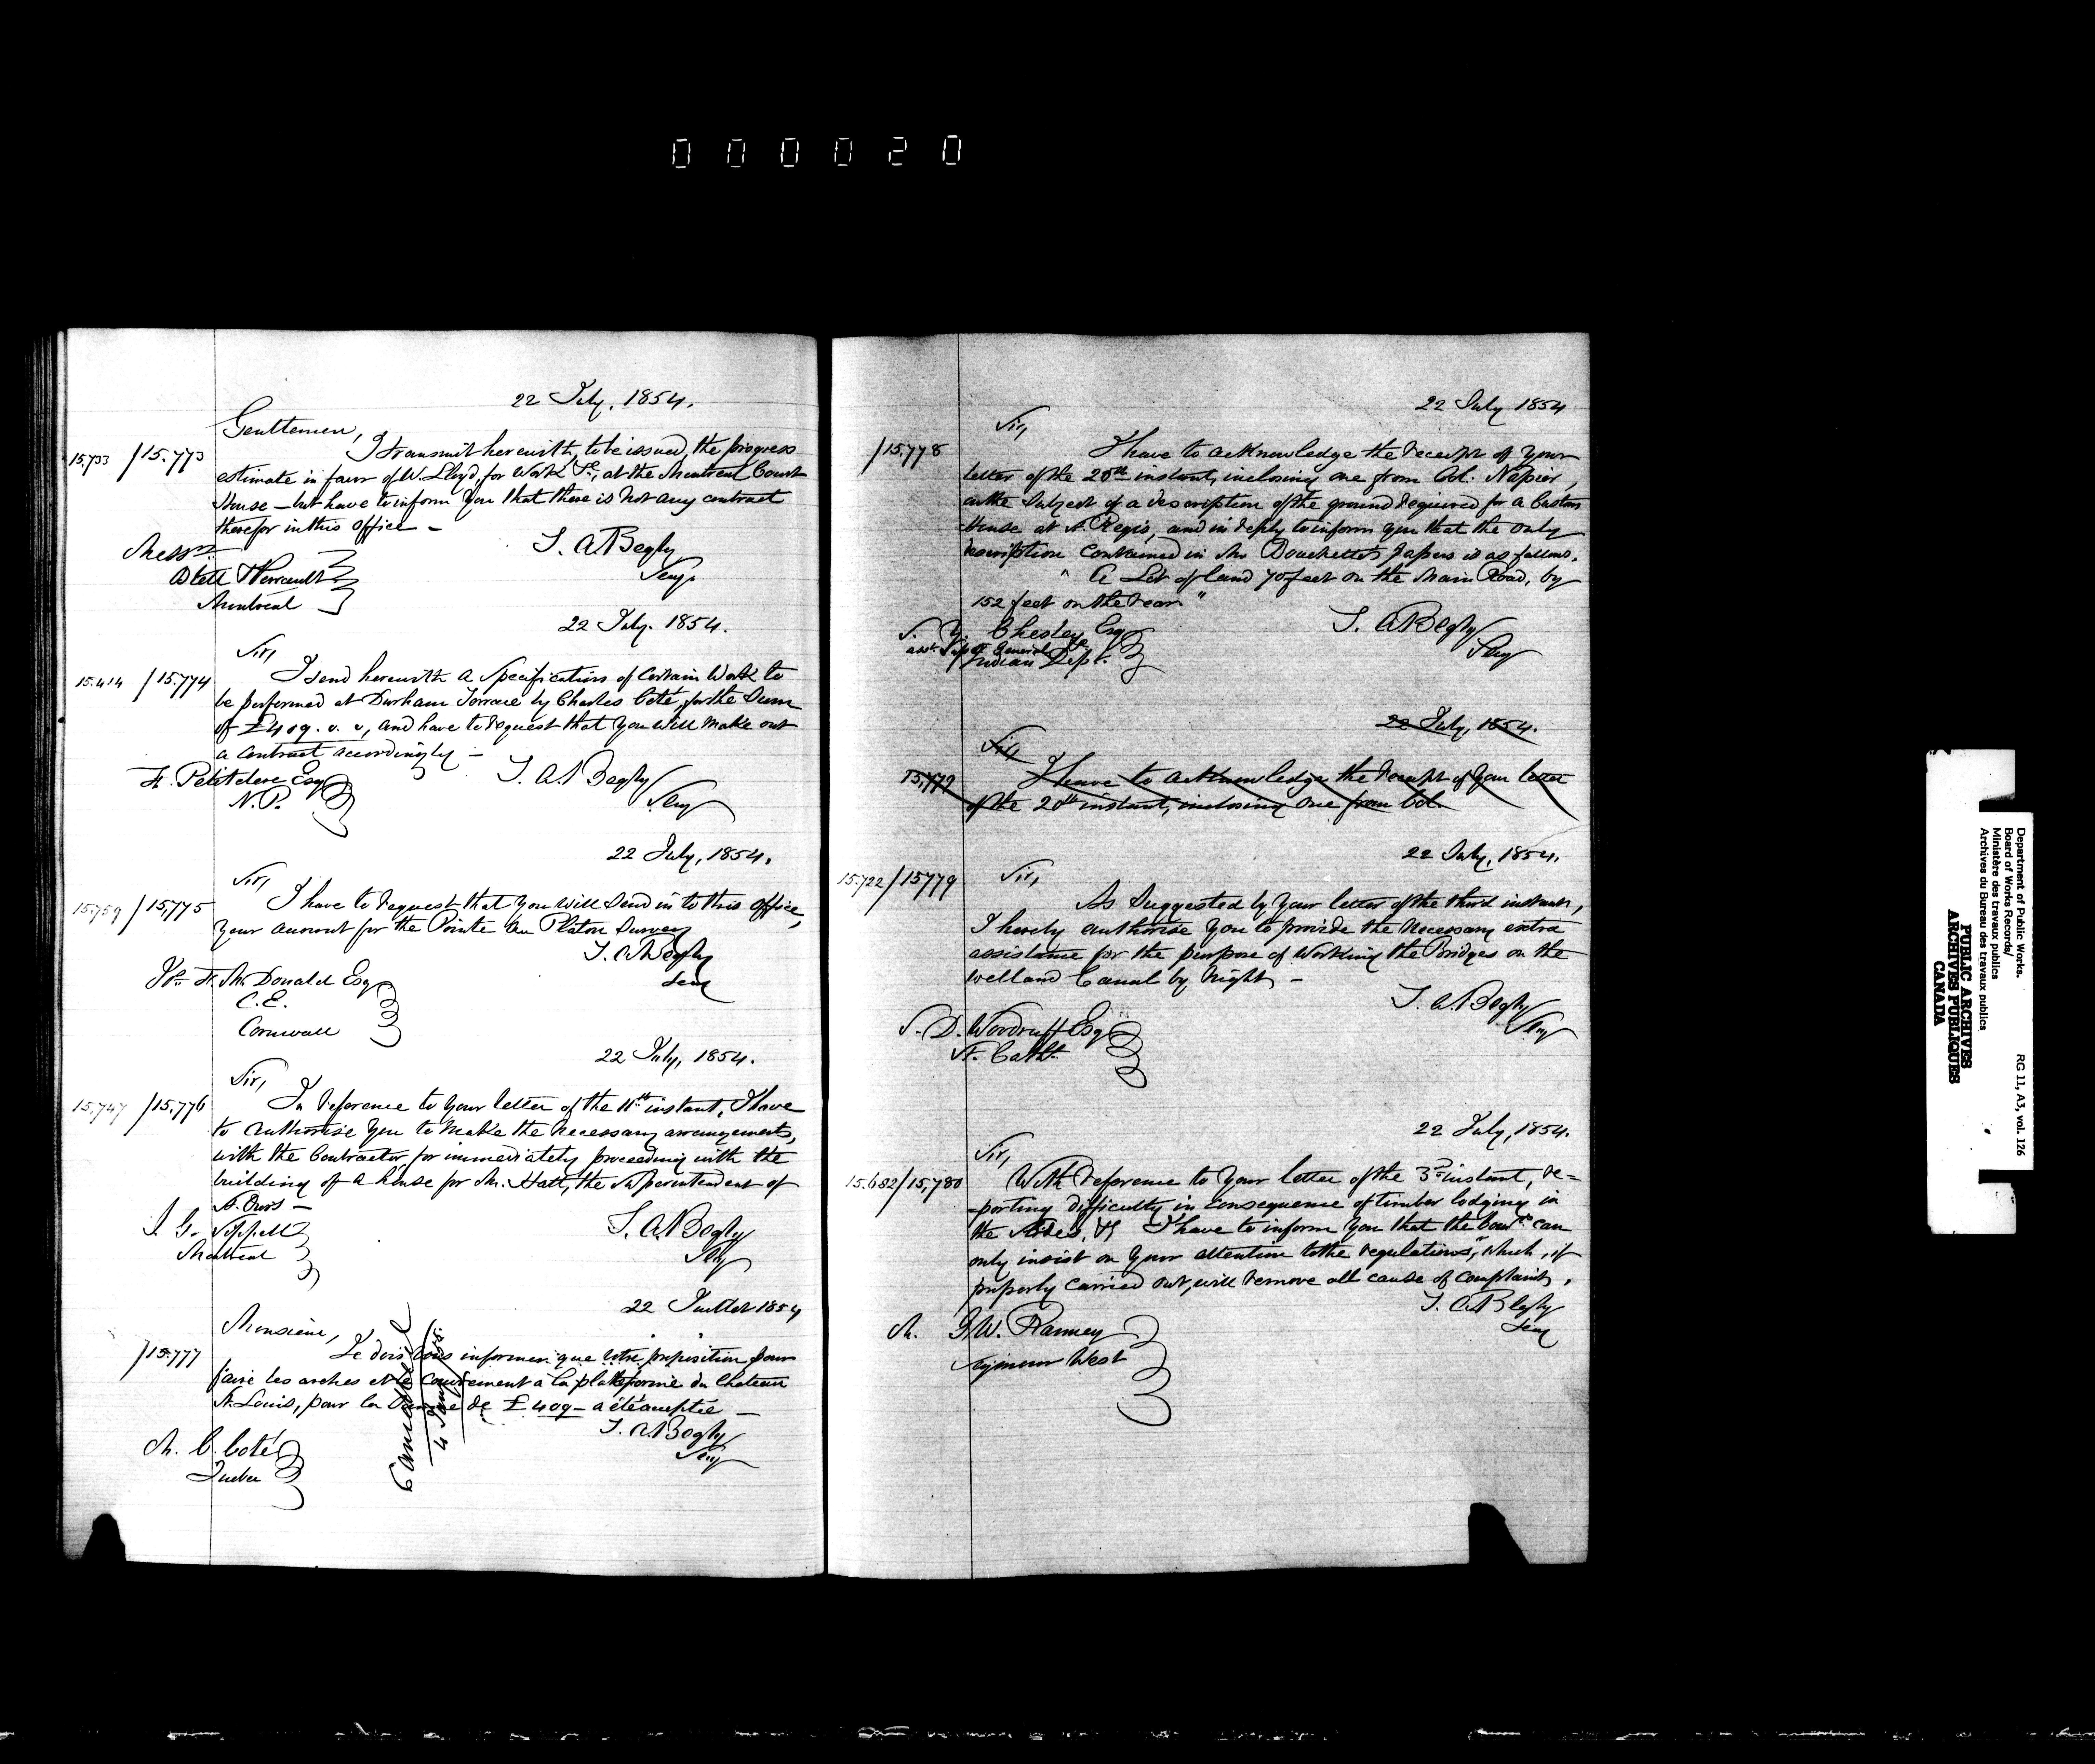 000020
22 July, 1854.
Gentlemen,
15.733 / 15.773 I transmit herewith, to be issued, the progress
estimate in favor of W. Lloyd, for Work &c, at the Montreal Court
House – but have to inform you that there is not any contract
therefor in this office –
T. A. Begly
Secy.
Messrs
& Perrault
Montreal
22 July. 1854.
Sir,
15.414 / 15.774 I send herewith a Specification of Certain Work to
be performed at Durham Terrace by Charles Coté, for the Sum
of £409. 0. 0, and have to request that you will make out
a contract accordingly –
T. A. Begly
Secy
Petitclerc Esq
N.P.
22 July, 1854.
Sir,
15.759 / 15,775 I have to request that you will send in to this office,
your account for the Pointe au Platon Survey
T. A. Begly
Secy
McDonald Esq
C.E.
Cornwall
22 July, 1854.
Sir,
15.747 / 15.776 In reference to your letter of the 11th instant, I have
to authorise you to make the necessary arrangements,
with the Contractor, for immediately proceeding with the
building of a house for Mr. Hall, the Superintendent of
St. Ours –
J. G. Sippell
Montreal
T. A. Begly
Secy
22 Juillet 1854
Monsieur,
/ 15.777 Je dois vous informer que votre proposition pour
faire les arches et le couvrement à la plateforme du Chateau
St. Louis, pour la Somme de £409 – a été acceptée –
T. A. Begly
Secy
M. C. Coté
Quebec
Cancelled
22 July 1854
Sir,
/ 15.778 I have to acknowledge the receipt of your
letter of the 20th instant, inclosing one from Col. Napier,
on the Subject of a description of the ground required for a Custom
House at St Regis, and in reply to inform you that the only
description contained in Mr Bouchette's papers is as follows.
" A Lot of land 70 feet on the Main Road, by
152 feet on the rear "
T. A. Begly
Secy
S. Y. Chesley Esq
Indian Dept.
22 July, 1854.
Sir,
15,779 I have to acknowledge the receipt of your letter
of the 20th instant, inclosing one from Col.
22 July, 1854.
15.722 / 15779 Sir,
As Suggested by your letter of the third instant,
I hereby authorise you to provide the necessary extra
assistance for the purpose of working the Bridges on the
Welland Canal by Night –
T. A. Begly
Secy
S. D. Woodruff Esq
St. Caths.
22 July, 1854.
Sir,
15.682 / 15,780 With reference to your letter of the 3rd instant, re=
=porting difficulty in consequence of timber lodging in
the Slides, &c I have to inform you that the Comrs can
only insist on your attention to the regulations, which, if
properly carried out, will remove all cause of complaint.
T. A. Begly
Secy
M. G. W. Ranney
Seymour West
Department of Public Works.
Board of Works Records/
Ministère des travaux publics
Archives du Bureau des travaux publics
RG 11, A3, vol. 126
PUBLIC ARCHIVES
ARCHIVES PUBLIQUES
CANADA